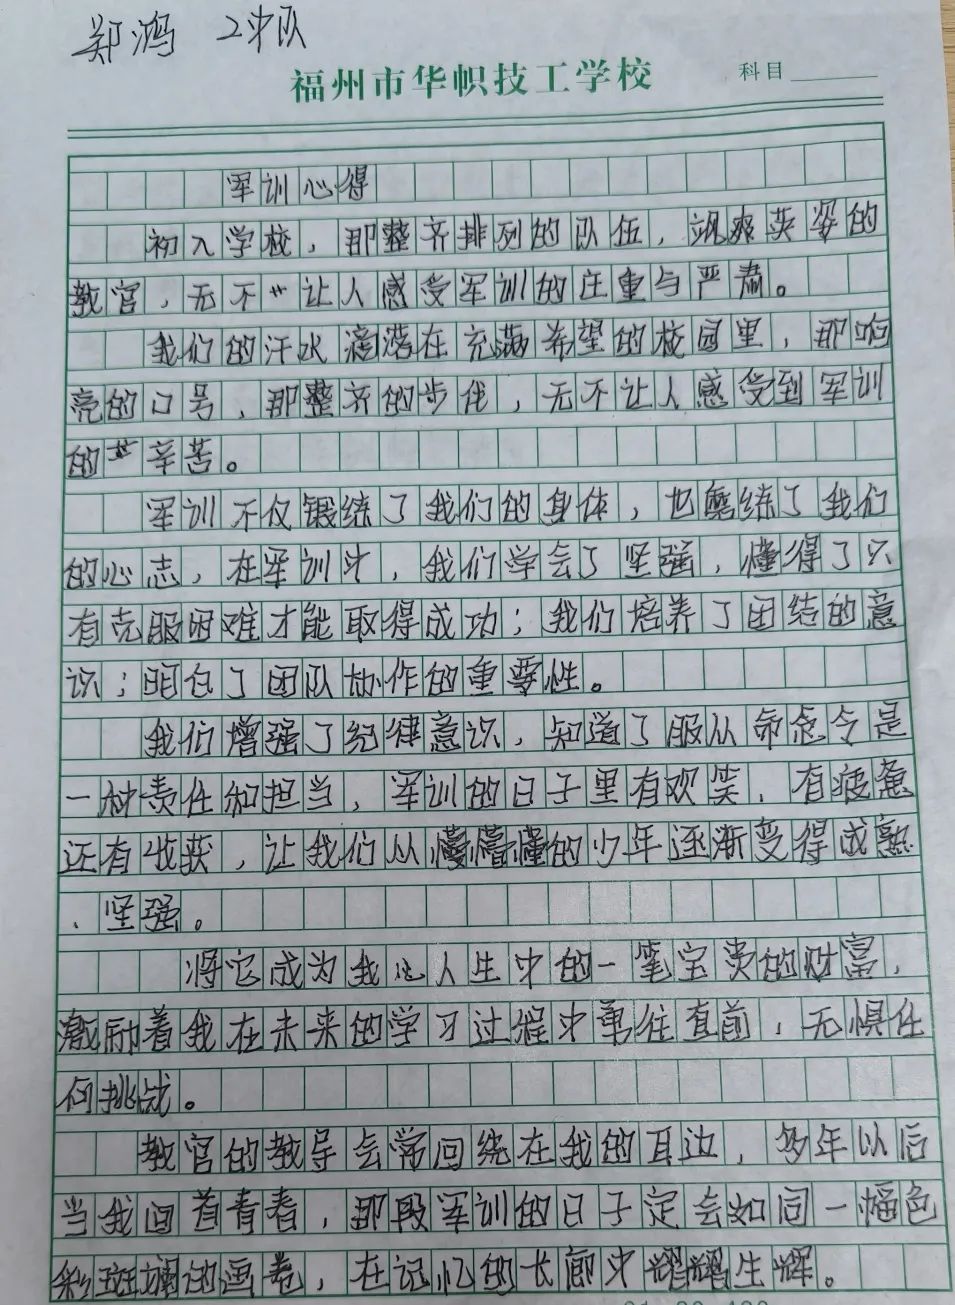 郑鸿 2中队
福州市华帜技工学校 科目
军训心得
初入学校，那整齐排列的队伍，飒爽英姿的
教官，无不让人感受军训的庄重与严肃。
我们的汗水滴落在充满希望的校园里，那响
亮的口号，那整齐的步伐，无不让人感受到军训
的辛苦。
军训不仅锻练了我们的身体，也磨练了我们
的心志，在军训中，我们学会了坚强，懂得了只
有克服困难才能取得成功；我们培养了团结的意
识；明白了团队协作的重要性。
我们增强了纪律意识，知道了服从命令是
一种责任和担当，军训的日子里有欢笑、有疲惫
还有收获，让我们从懵懵懂的少年逐渐变得成熟
、坚强。
将它成为我人生中的一笔宝贵的财富，
激励着我在未来的学习过程中勇往直前，无惧任
何挑战。
教官的教导会常回绕在我的耳边，多年以后
当我回首青春，那段军训的日子定会如同一幅色
彩斑斓的画卷，在记忆的长廊中耀耀生辉。